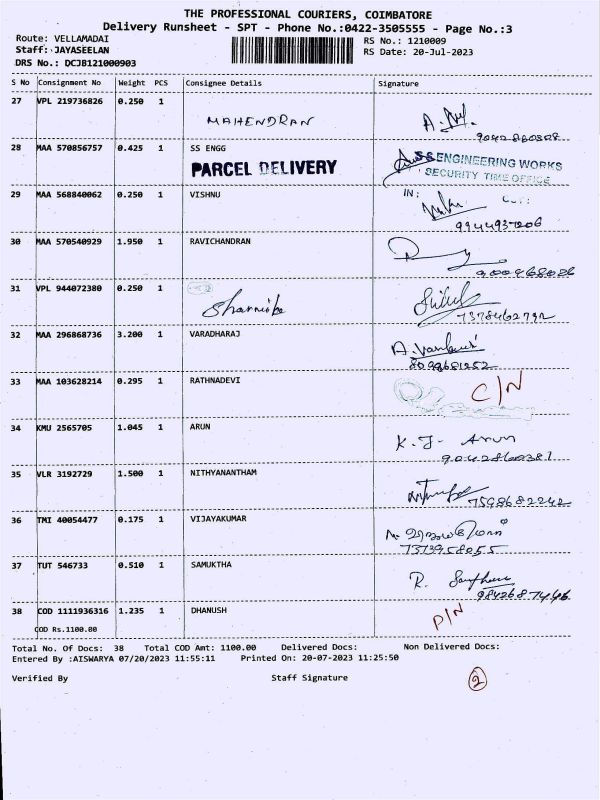 THE PROFESSIONAL COURIERS, COIMBATORE
Delivery Runsheet - SPT - Phone No.:0422-3505555 - Page No.:3
Route: VELLAMADAI RS No.: 1210009
Staff: JAYASEELAN RS Date: 20-Jul-2023
DRS No.: DCJB121000903
S No Consignment No Weight PCS Consignee Details Signature
27 VPL 219736826 0.250 1 MAHENDRAN
9042860308
28 MAA 570856757 0.425 1 SS ENGG
PARCEL DELIVERY
S.S ENGINEERING WORKS
SECURITY TIME OFFICE
29 MAA 568840062 0.250 1 VISHNU IN: OUT:
9944937206
30 MAA 570540929 1.950 1 RAVICHANDRAN
31 VPL 944072380 0.250 1
7378462792
32 MAA 296868736 3.200 1 VARADHARAJ
8099681252
33 MAA 103628214 0.295 1 RATHNADEVI C/N
34 KMU 2565705 1.045 1 ARUN K. J. Arun
9042860381
35 VLR 3192729 1.500 1 NITHYANANTHAM
7598682242
36 TMI 40054477 0.175 1 VIJAYAKUMAR
7373958055
37 TUT 546733 0.510 1 SAMUKTHA
9842687446
38 COD 1111936316 1.235 1 DHANUSH P/N
COD Rs.1100.00
Total No. Of Docs: 38 Total COD Amt: 1100.00 Delivered Docs: Non Delivered Docs:
Entered By :AISWARYA 07/20/2023 11:55:11 Printed On: 20-07-2023 11:25:50
Verified By Staff Signature 2